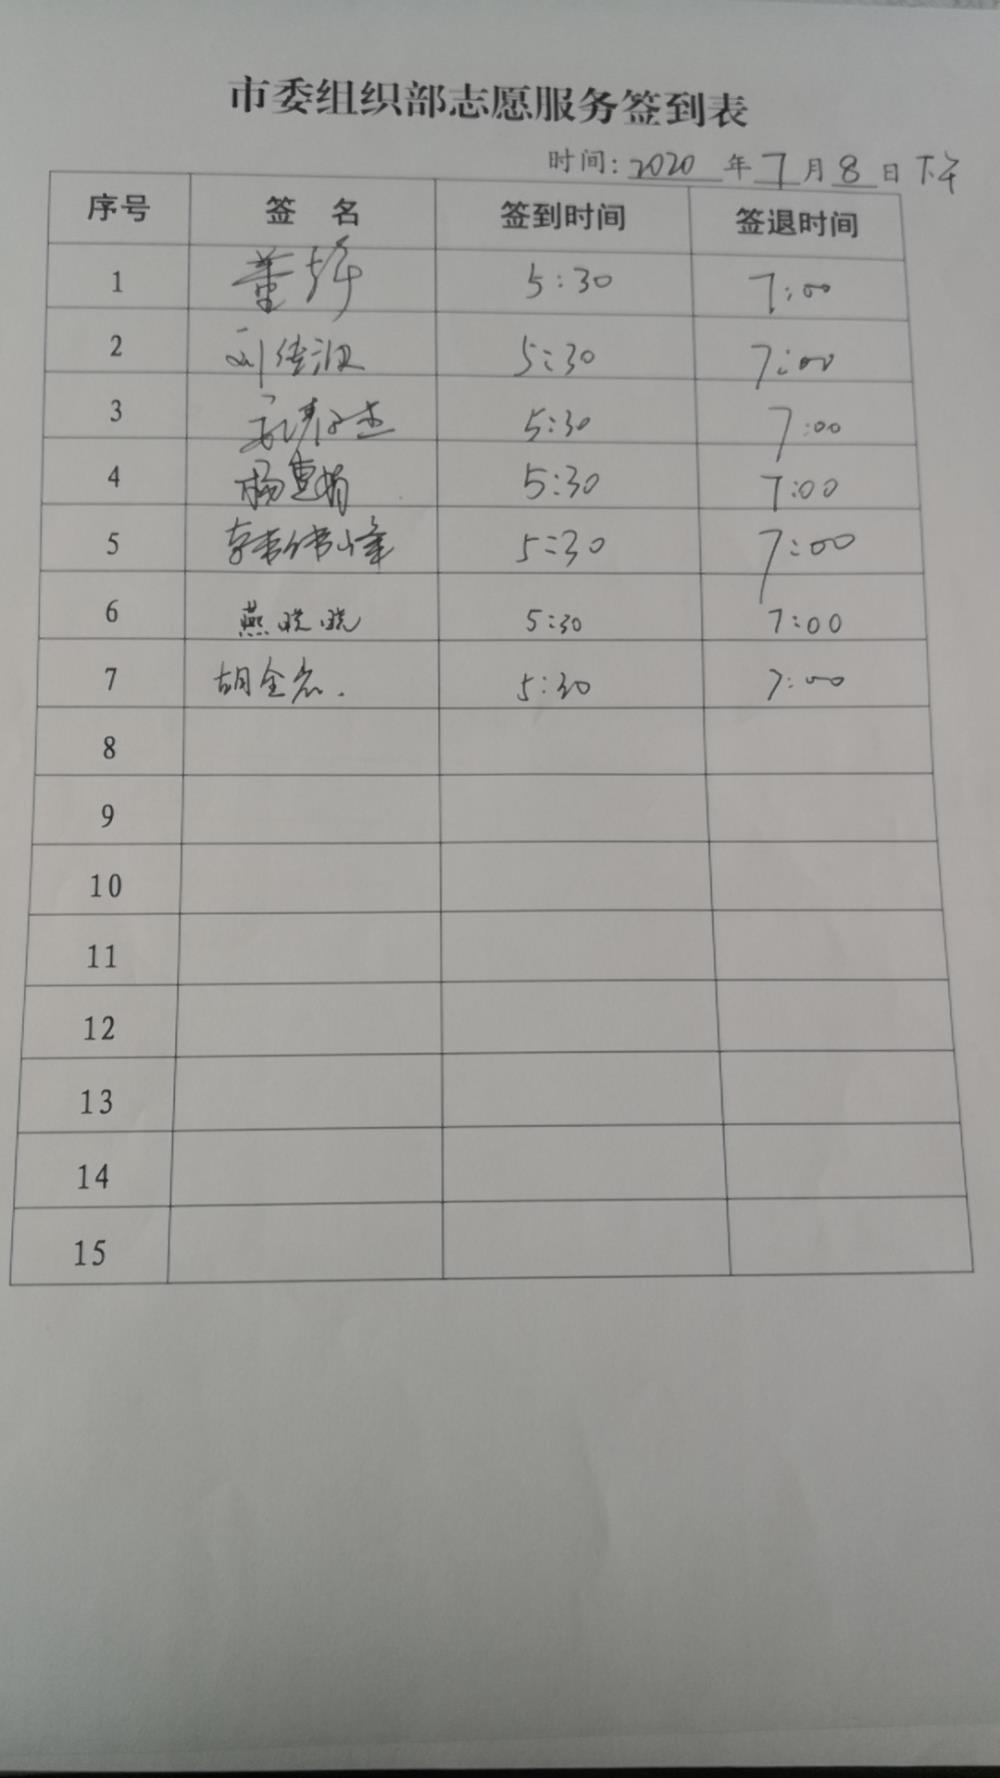 市委组织部志愿服务签到表
时间：2020年7月8日 下午
序号 签 名 签到时间 签退时间
1 董 5:30 7:00
2 刘 5:30 7:00
3 5:30 7:00
4 杨惠娟 5:30 7:00
5 李 峰 5:30 7:00
6 燕晓晓 5:30 7:00
7 胡全 5:30 7:00
8
9
10
11
12
13
14
15